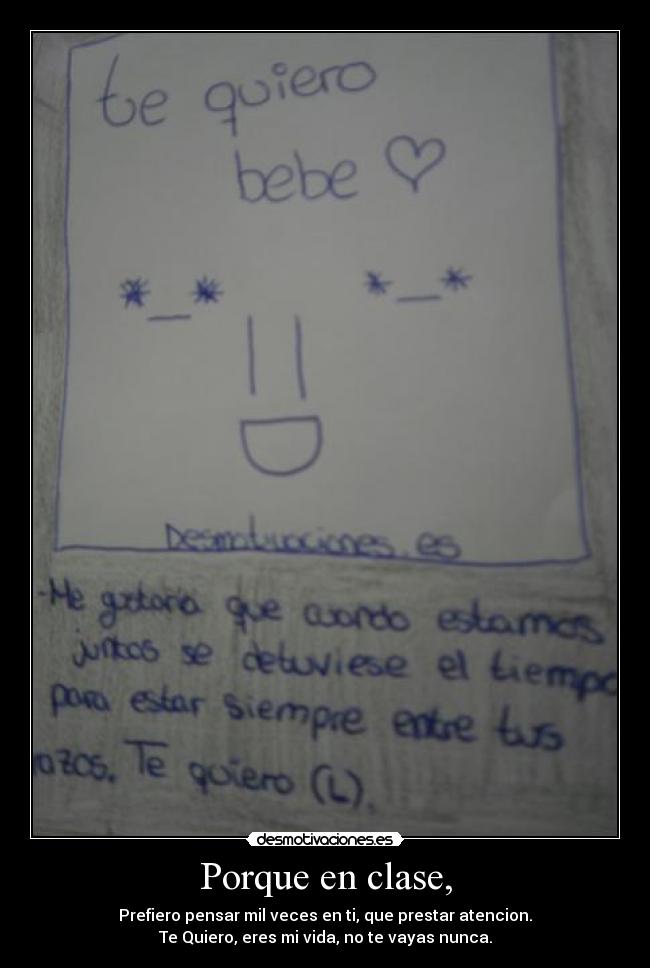 te quiero
bebe ♡
*_* *_*
Desmotivaciones.es
-Me gustaria que cuando estamos
juntos se detuviese el tiempo
para estar siempre entre tus
azos. Te quiero (L).
desmotivaciones.es
Porque en clase,
Prefiero pensar mil veces en ti, que prestar atencion.
Te Quiero, eres mi vida, no te vayas nunca.